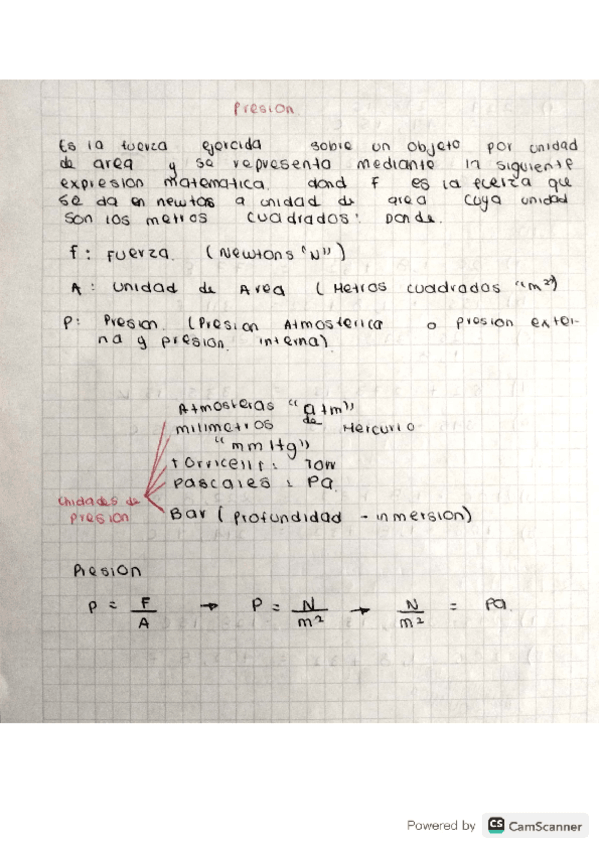 Presion
Es la fuerza ejercida sobre un objeto por unidad
de area y se representa mediante la siguiente
expresion matematica. dond F es la fuerza que
se da en newtos a unidad de area cuya unidad
son los metros cuadrados: Donde.
f: Fuerza. (Newtons "N")
A: unidad de Area (Metros cuadrados "m²")
P: Presion. (Presion Atmosferica o presion exter-
na y presion interna)
Atmosferas "atm"
milimetros de Mercurio
"mmHg"
torricelli: Torr
Pascales: Pa.
Unidades de
Presion
Bar (profundidad - inmersion)
Presion
P = F/A → P = N/m² → N/m² = Pa.
Powered by CS CamScanner